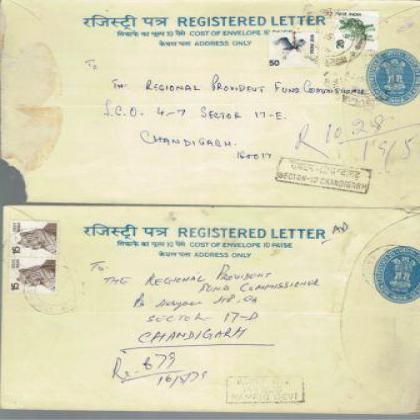 रजिस्ट्री पत्र REGISTERED LETTER
लिफाफे का मूल्य 10 पैसे COST OF ENVELOPE 10 PAISE
केवल पता ADDRESS ONLY
50
20
To
THE REGIONAL PROVIDENT FUND COMMISSIONER
S.C.O. 4-7 SECTOR 17-E.
CHANDIGARH
160017
R 1028
19/5
SECTOR-17 CHANDIGARH
रजिस्ट्री पत्र REGISTERED LETTER AD
लिफाफे का मूल्य 10 पैसे COST OF ENVELOPE 10 PAISE
केवल पता ADDRESS ONLY
15
15
To
THE REGIONAL PROVIDENT
FUND COMMISSIONER
SECTOR 17-D
CHANDIGARH